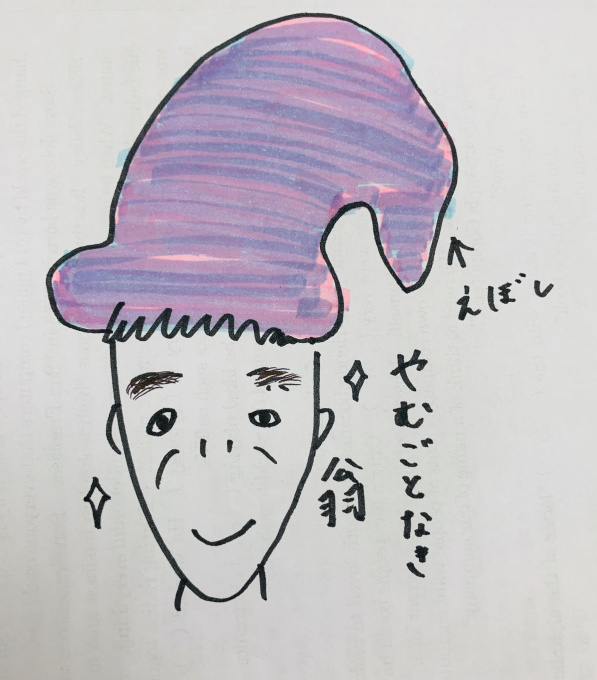 えぼし
やむごとなき
翁